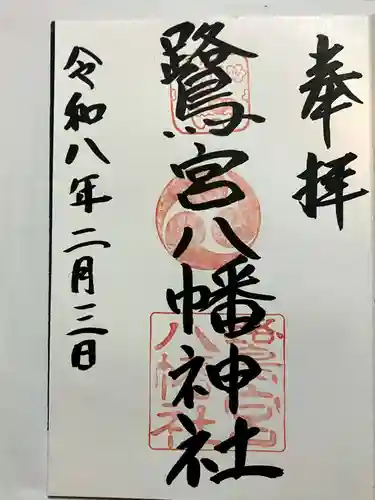 奉拝
鷺宮八幡神社
令和八年二月三日
鷺宮
八幡社